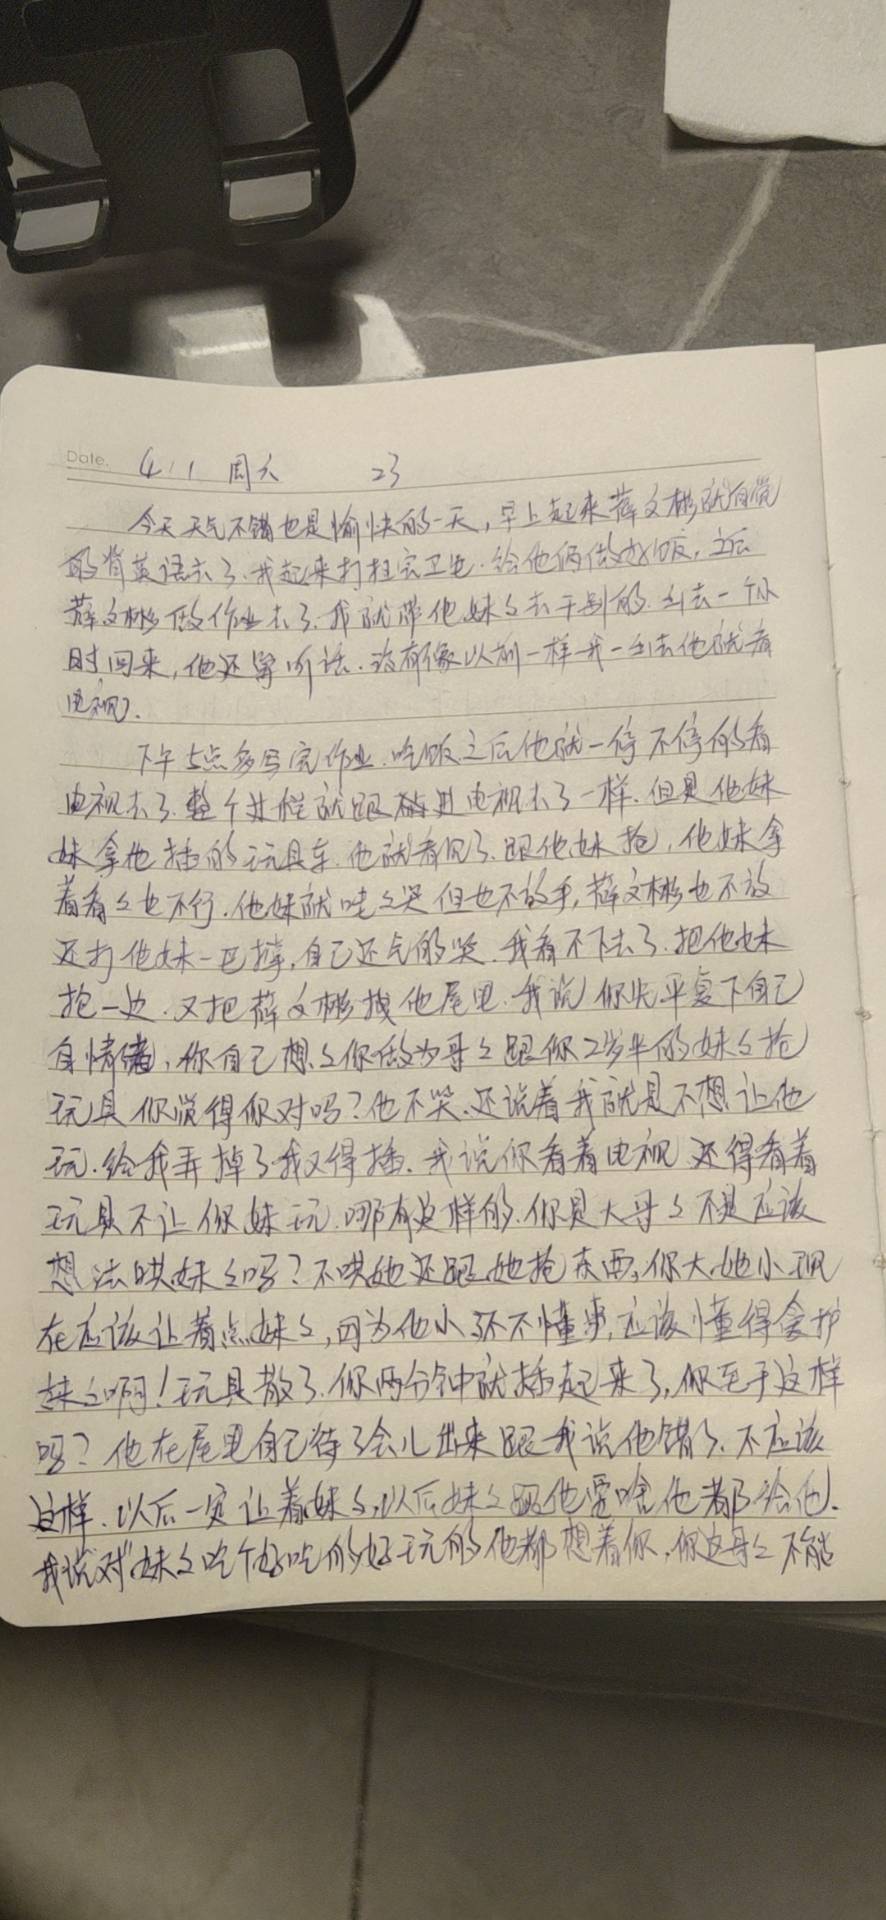 Date. 4/1 周六 23
今天天气不错也是愉快的一天，早上起来薛文彬就自觉
的背英语去了.我起来打扫完卫生.给他俩做好饭，之后
薛文彬做作业去了.我就带他妹々去干别的.出去一个小
时回来，他还算听话.没有像以前一样我一出去他就看
电视).
下午5点多写完作业.吃饭之后他就一停不停的看
电视去了.整个过程就跟 进电视去了一样.但是他妹
妹拿他插的玩具车.他就看见了.跟他妹抢，他妹拿
着看々也不行.他妹就哇々哭但也不放手，薛文彬也不放
还打他妹一巴掌，自己还气的哭.我看不下去了.把他妹
抱一边.又把薛文彬拽他屋里.我说你先平复下自己
自情绪，你自己想々你做为哥々跟你2岁半的妹々抢
玩具你觉得你对吗？他不哭.还说着我就是不想让他
玩.给我弄掉了我又得插.我说你看着电视还得看着
玩具不让你妹玩.哪有这样的.你是大哥々不是应该
想法哄妹々吗？不哄她还跟她抢东西，你大她小现
在应该让着点妹々，因为他小还不懂事，应该懂得爱护
妹々啊！玩具散了.你两分钟就插起来了，你至于这样
吗？他在屋里自己待了会儿出来跟我说他错了.不应该
这样.以后一定让着妹々，以后妹々跟他要啥他都给他.
我说对妹々吃个好吃的好玩的他都想着你，你这哥々不能